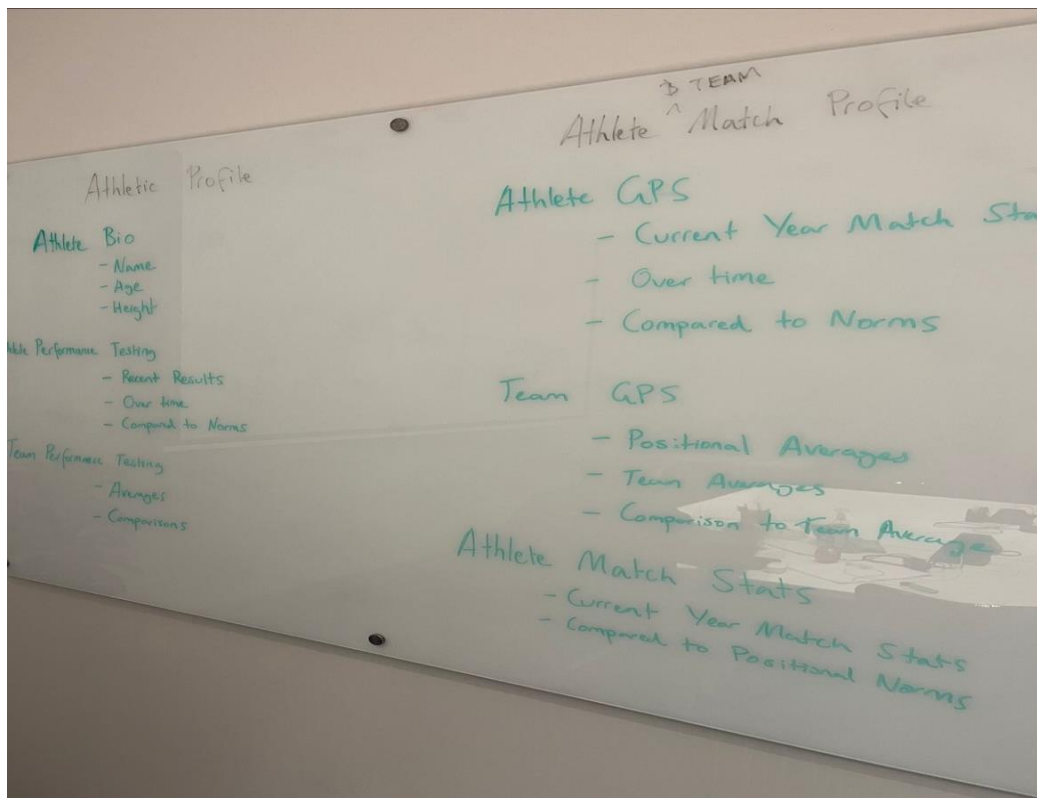 Athletic Profile
Athlete Bio
- Name
- Age
- Height
Performance Testing
- Recent Results
- Over time
- Compared to Norms
Team Performance Testing
- Averages
- Comparisons
& TEAM
Athlete ^ Match Profile
Athlete GPS
- Current Year Match Sta
- Over time
- Compared to Norms
Team GPS
- Positional Averages
- Team Averages
- Comparison to Team Average
Athlete Match Stats
- Current Year Match Stats
- Compared to Positional Norms